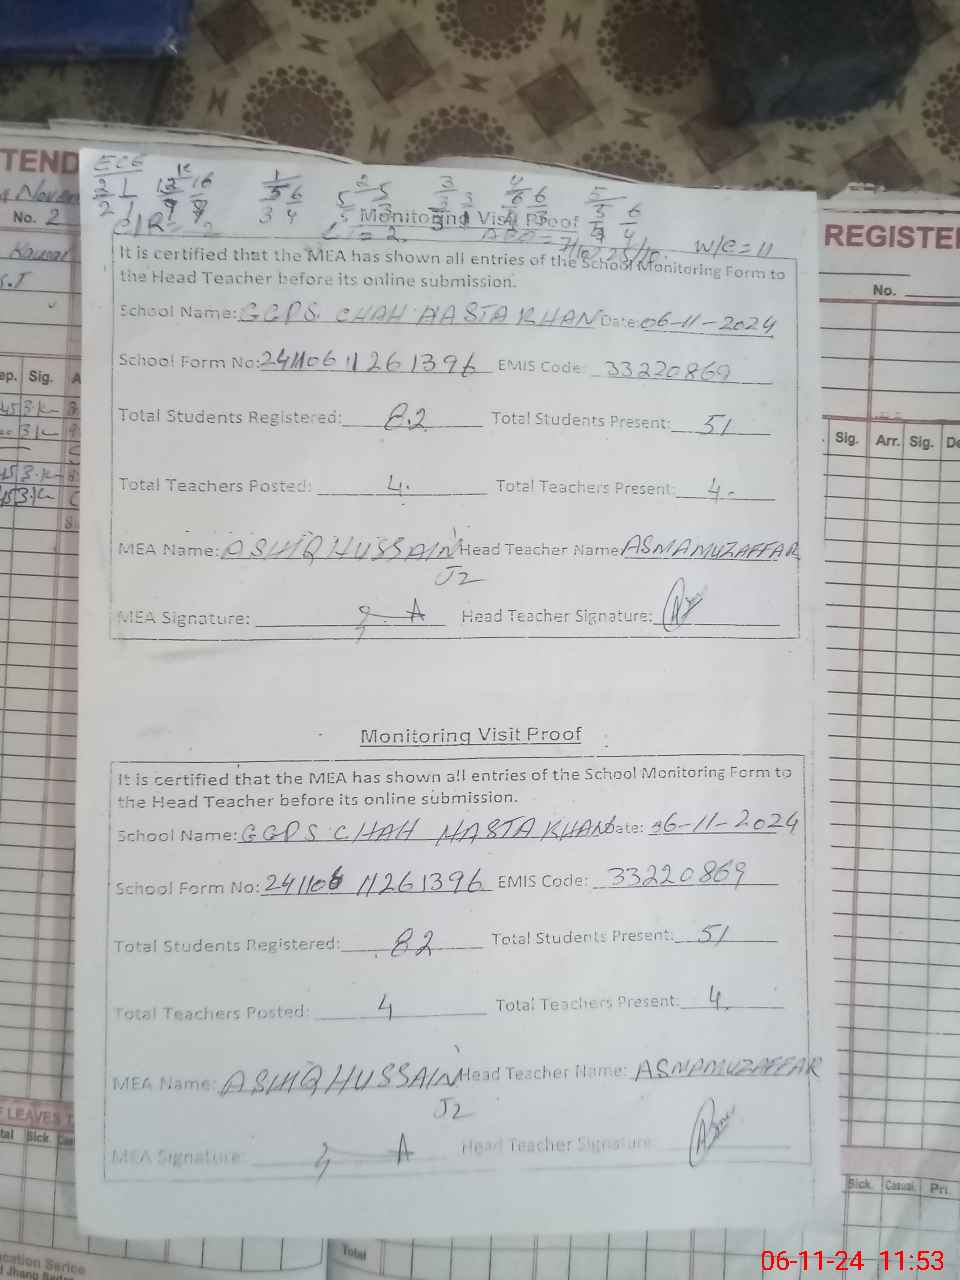 TEND
REGISTER
No. 2
No.
ECE
C/R = 2
W/C = 11
Monitoring Visit Proof
It is certified that the MEA has shown all entries of the School Monitoring Form to
the Head Teacher before its online submission.
School Name: GGPS CHAH HASTA KHAN Date: 06-11-2024
School Form No: 241106 11261396 EMIS Code: 33220869
Total Students Registered: 82 Total Students Present: 51
Total Teachers Posted: 4. Total Teachers Present: 4.
MEA Name: ASHIQ HUSSAIN Head Teacher Name: ASMA MUZAFFAR
J2
MEA Signature: Head Teacher Signature:
Monitoring Visit Proof
It is certified that the MEA has shown all entries of the School Monitoring Form to
the Head Teacher before its online submission.
School Name: GGPS CHAH HASTA KHAN Date: 06-11-2024
School Form No: 241106 11261396 EMIS Code: 33220869
Total Students Registered: 82 Total Students Present: 51
Total Teachers Posted: 4 Total Teachers Present: 4.
MEA Name: ASHIQ HUSSAIN Head Teacher Name: ASMA MUZAFFAR
J2
MEA Signature: Head Teacher Signature:
Sig.
Sig. Arr. Sig.
LEAVES
Sick
Sick Casual Pri.
Total
06-11-24 11:53